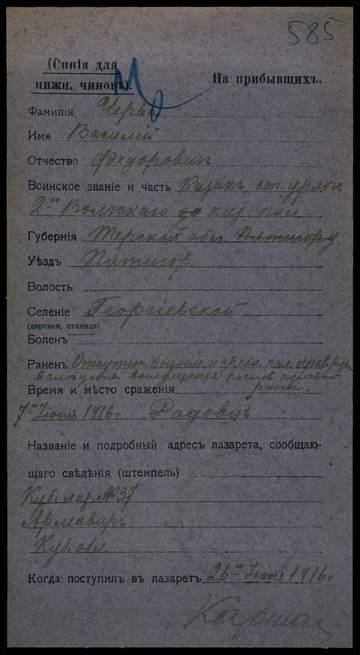 585
(Синія для
нижн. чиновъ).
На прибывшихъ.
Фамилія Черв
Имя Василій
Отчество Федоровичъ
Воинское званіе и часть Казакъ ст. урядн
2го Волжскаго каз. пол
Губернія Терской обл.
Уѣздъ Пятигор
Волость
Селеніе Георгіевской
(деревня, станица)
Боленъ
Раненъ Отсутств
вслѣдствіе послѣ пулевой
Время и мѣсто сраженія раны
7го Іюня 1916г Радовцъ
Названіе и подробный адресъ лазарета, сообщаю-
щаго свѣдѣнія (штемпель)
Куб. лаз. №37
Армавиръ
Куб обл
Когда поступилъ въ лазаретъ 26го Іюня 1916г